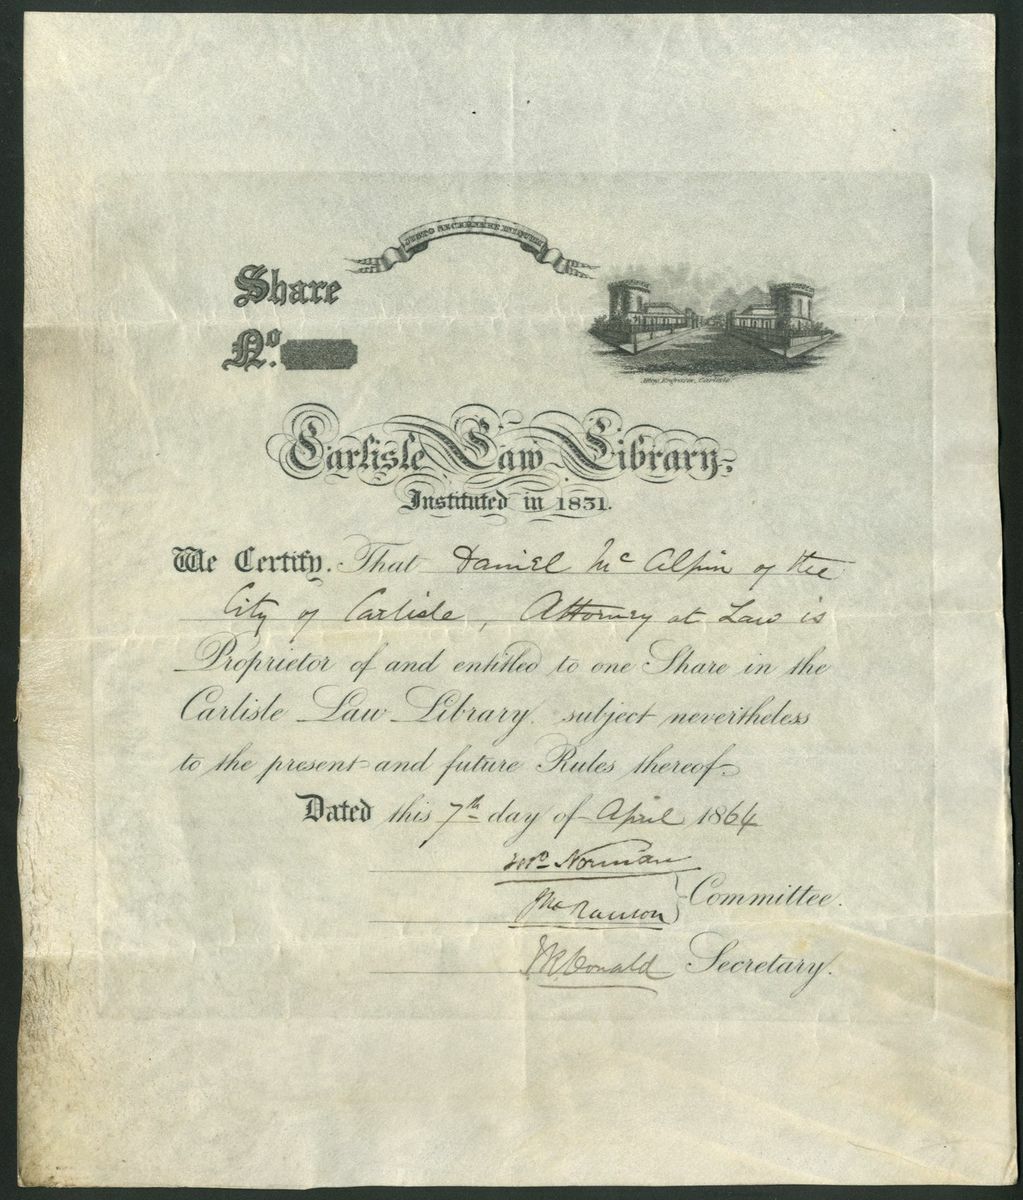 JUSTO SECERNERE INIQUUM
Share
No.
Carlisle Law Library,
Instituted in 1831.
We Certify. That Daniel Mc Alpin of the
City of Carlisle, Attorney at Law is
Proprietor of and entitled to one Share in the
Carlisle Law Library, subject nevertheless
to the present and future Rules thereof.
Dated this 7th day of April 1864
Norman
Committee.
Secretary.